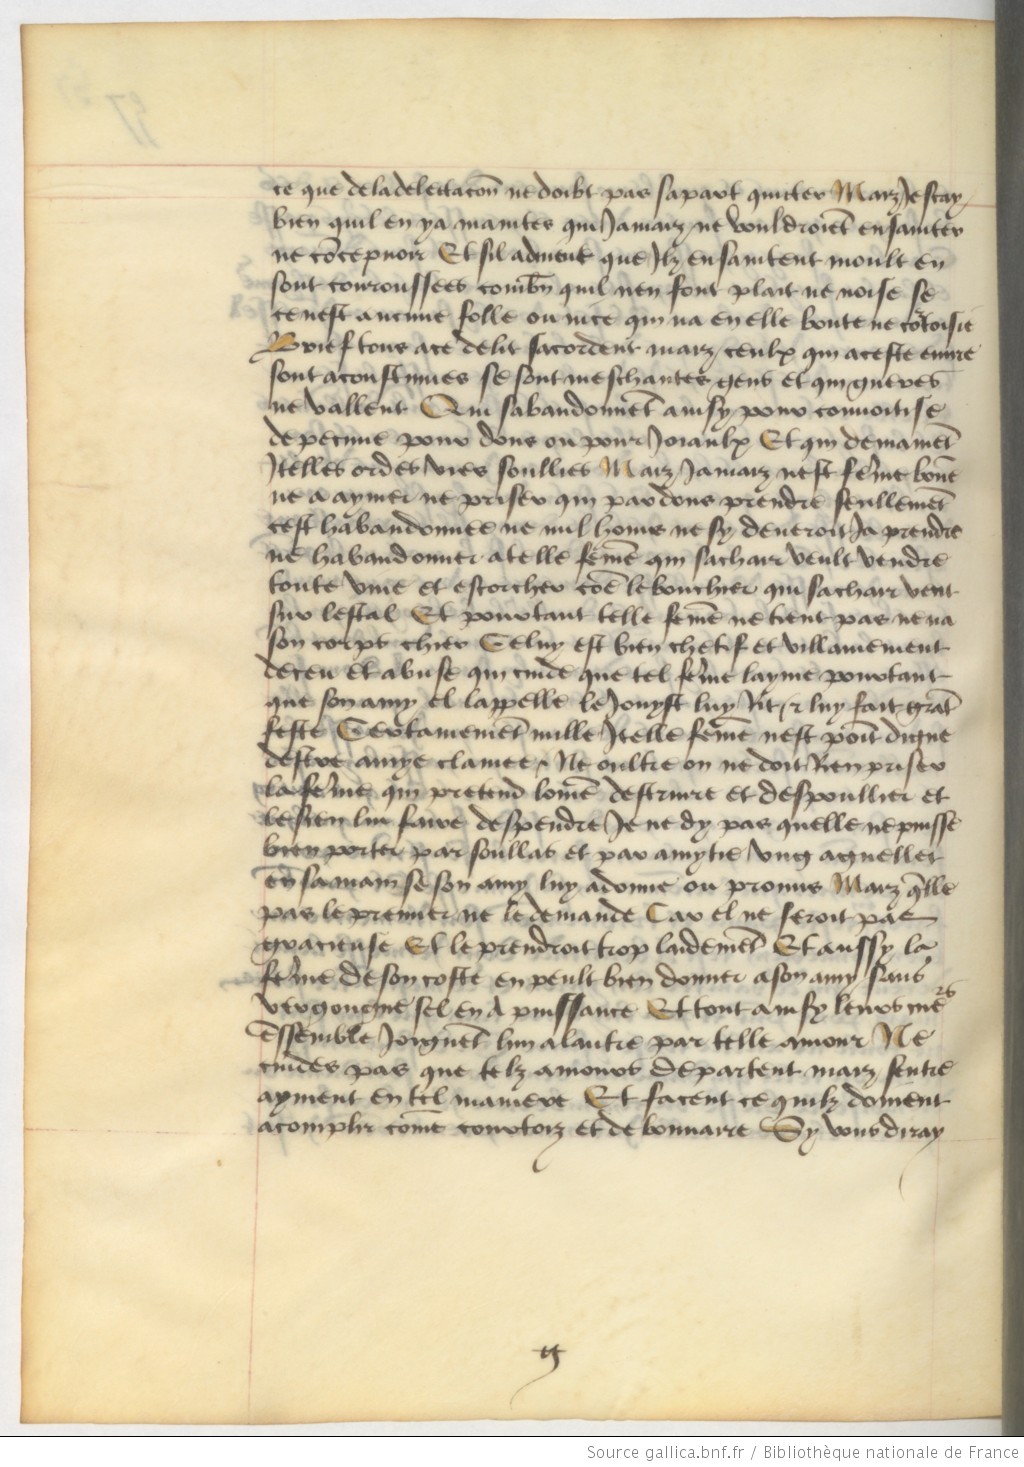 ce que de la delectacon ne doibt pas sa part quicter Marz Je scay
bien quil en ya maintes qui Jamarz ne vouldroiet ensainter
ne concepuoir Et sil aduient que Ilz ensaintent moult en
sont courroussees combn quil nen font plait ne noise se
ce nest aucune folle ou nice qui na en elle bonte ne cortoisie
Brief tous a ce delit sacordent marz ceulx qui a ceste euure
sont acoustumes se sont meschantes gens et qui gueres
ne vallent Qui sabandonnet ainsy pour conuoitise
de pecune pour dons ou pour Joiaulx Et qui demainet
Itelles ordes vies soullies Marz Jamarz nest feme bone
ne a aymer ne priser qui par dons prendre seullemet
cest habandonnee ne nul home ne sy deueroit Ja prendre
ne habandonner a telle feme qui sa chair veult vendre
toute viue et escorcher coe le bouchier qui sa chair vent
sur lestal Et pourtant telle feme ne tient pas ne na
son corps chier Celuy est bien chetif et villainement
deceu et abuse qui cuide que tel feme layme pourtant
que son amy el lappelle le Jouyst luy Rit & luy fait grat
feste Certainemet nulle Itelle feme nest point digne
destre amye clamee Ne oultre on ne doit Rien priser
la feme qui pretend lome destruire et despoullier et
le sien luy faire despendre Je ne dy pas quelle ne puisse
bien porter par soullas et par amytie vng aguellet
en sa main se son amy luy a donne ou promis Marz qlle
pas le premier ne le demande Car el ne seroit pas
gracieuse Et le prendroit trop laidemet Et aussy la
feme de son coste en peult bien donner a son amy sans
vergongne sel en a puissance Et tout ainsy leurs mers
enssemble Joignet lun a lautre par telle amour Ne
cuides pas que telz amours departent marz sentre
ayment en tel maniere Et facent ce quilz doiuent
acomplir come courtoiz et de bonnaire Sy vous diray
Source gallica.bnf.fr / Bibliothèque nationale de France